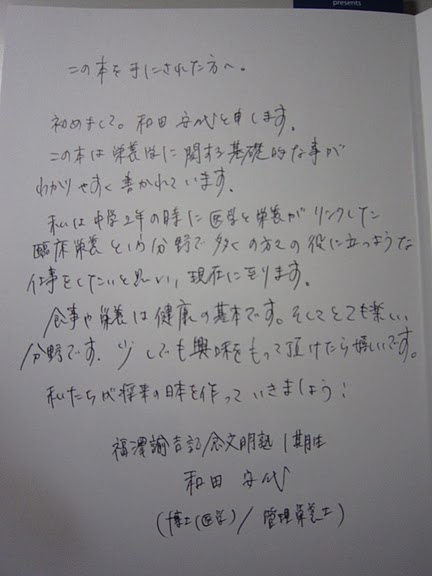 presents
この本を手にされた方へ。
初めまして。和田 安代と申します。
この本は栄養学に関する基礎的な事が
わかりやすく書かれています。
私は中学2年の時に医学と栄養がリンクした
臨床栄養という分野で多くの方々の役に立つような
仕事をしたいと思い、現在に至ります。
食事や栄養は健康の基本です。そしてとても楽しい
分野です。少しでも興味をもって頂けたら嬉しいです。
私たちが将来の日本を作っていきましょう!
福澤諭吉記念文明塾 1期生
和田 安代
(博士(医学)/管理栄養士)